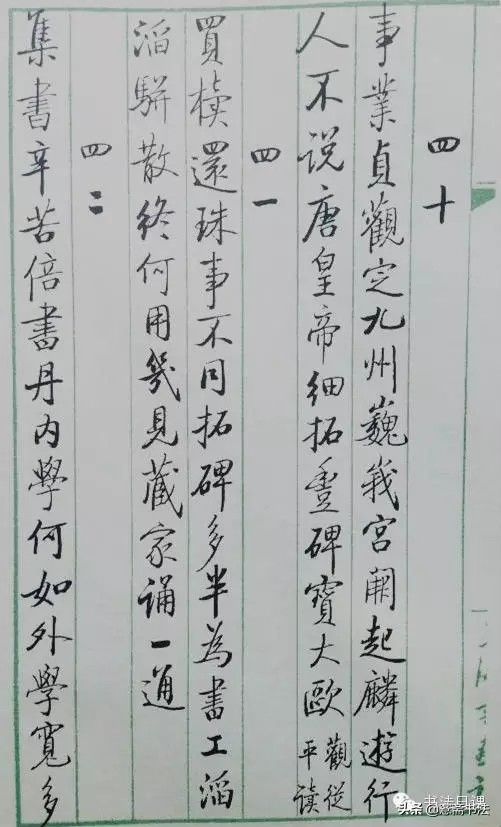 四十
事業貞觀定九州巍峩宮闕起麟遊行
人不説唐皇帝細拓豐碑寶大歐
觀從
平讀
四一
買櫝還珠事不同拓碑多半為書工滔
滔駢散終何用幾見藏家誦一通
四二
集書辛苦倍書丹内學何如外學寬多
书法日课
头条